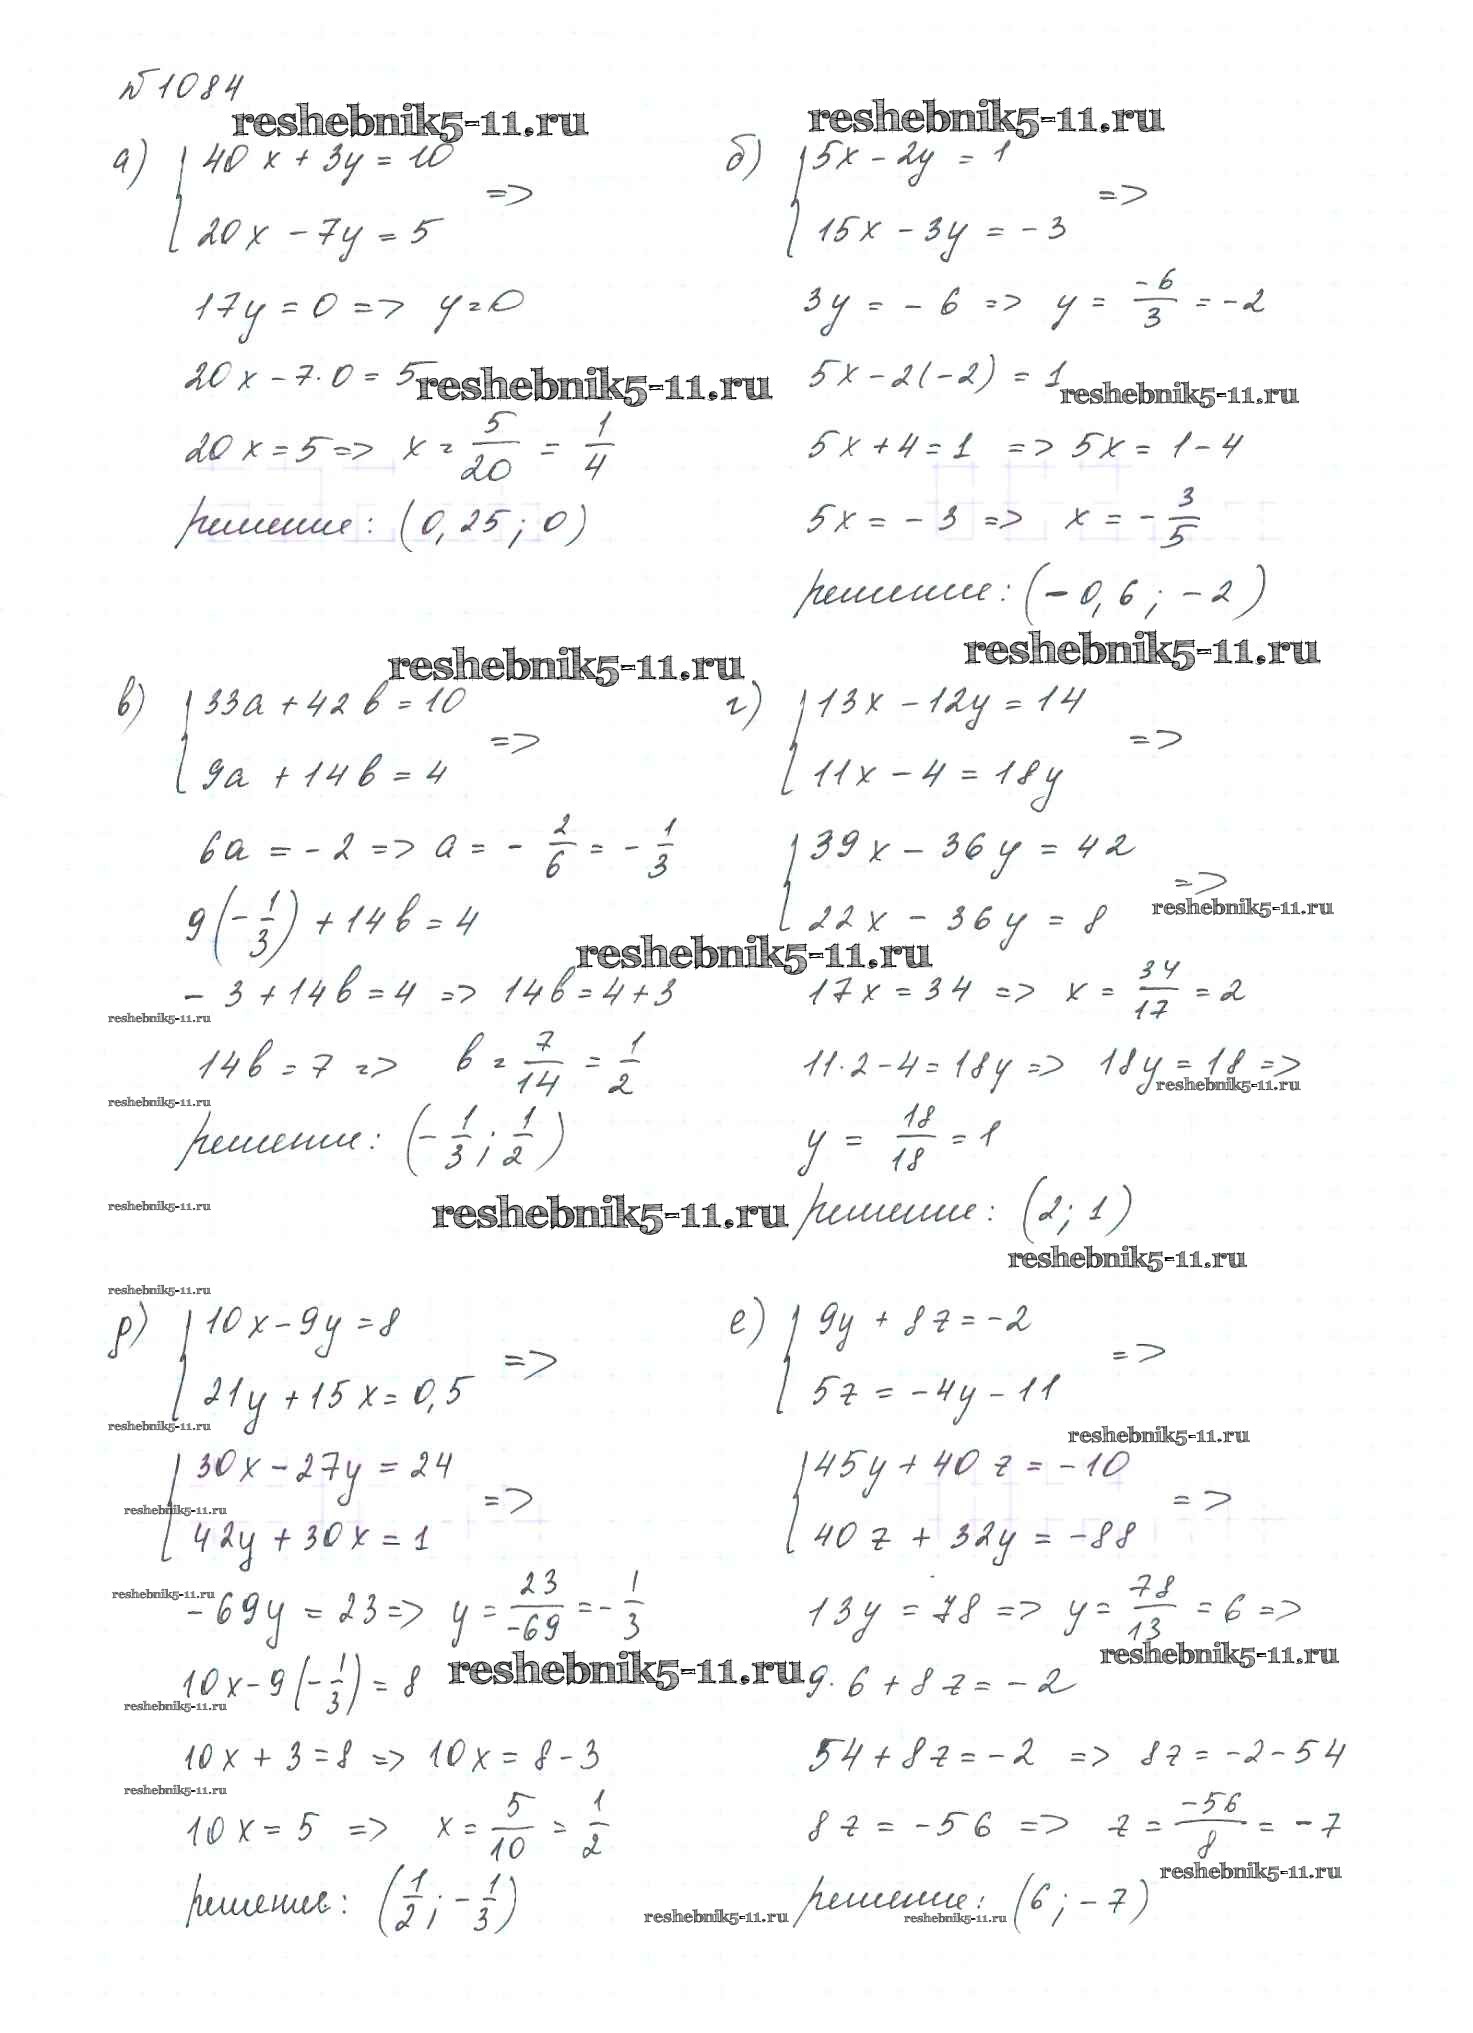 №1084
reshebnik5-11.ru
reshebnik5-11.ru
а) { 40x + 3y = 10
20x - 7y = 5 =>
17y = 0 => y = 0
20x - 7·0 = 5
reshebnik5-11.ru
20x = 5 => x = 5/20 = 1/4
решение: (0,25; 0)
б) { 5x - 2y = 1
15x - 3y = -3 =>
3y = -6 => y = -6/3 = -2
5x - 2(-2) = 1
reshebnik5-11.ru
5x + 4 = 1 => 5x = 1 - 4
5x = -3 => x = -3/5
решение: (-0,6; -2)
reshebnik5-11.ru
reshebnik5-11.ru
в) { 33a + 42b = 10
9a + 14b = 4 =>
6a = -2 => a = -2/6 = -1/3
9(-1/3) + 14b = 4
reshebnik5-11.ru
-3 + 14b = 4 => 14b = 4 + 3
reshebnik5-11.ru
14b = 7 => b = 7/14 = 1/2
reshebnik5-11.ru
решение: (-1/3; 1/2)
reshebnik5-11.ru
reshebnik5-11.ru
г) { 13x - 12y = 14
11x - 4 = 18y =>
{ 39x - 36y = 42
22x - 36y = 8 =>
reshebnik5-11.ru
17x = 34 => x = 34/17 = 2
11·2 - 4 = 18y => 18y = 18 =>
reshebnik5-11.ru
y = 18/18 = 1
решение: (2; 1)
reshebnik5-11.ru
reshebnik5-11.ru
д) { 10x - 9y = 8
21y + 15x = 0,5 =>
reshebnik5-11.ru
{ 30x - 27y = 24
reshebnik5-11.ru
42y + 30x = 1 =>
reshebnik5-11.ru
-69y = 23 => y = 23/-69 = -1/3
10x - 9(-1/3) = 8
reshebnik5-11.ru
reshebnik5-11.ru
10x + 3 = 8 => 10x = 8 - 3
reshebnik5-11.ru
10x = 5 => x = 5/10 = 1/2
решение: (1/2; -1/3)
reshebnik5-11.ru
е) { 9y + 8z = -2
5z = -4y - 11 =>
reshebnik5-11.ru
{ 45y + 40z = -10
40z + 32y = -88 =>
13y = 78 => y = 78/13 = 6 =>
reshebnik5-11.ru
9·6 + 8z = -2
54 + 8z = -2 => 8z = -2 - 54
8z = -56 => z = -56/8 = -7
reshebnik5-11.ru
решение: (6; -7)
reshebnik5-11.ru